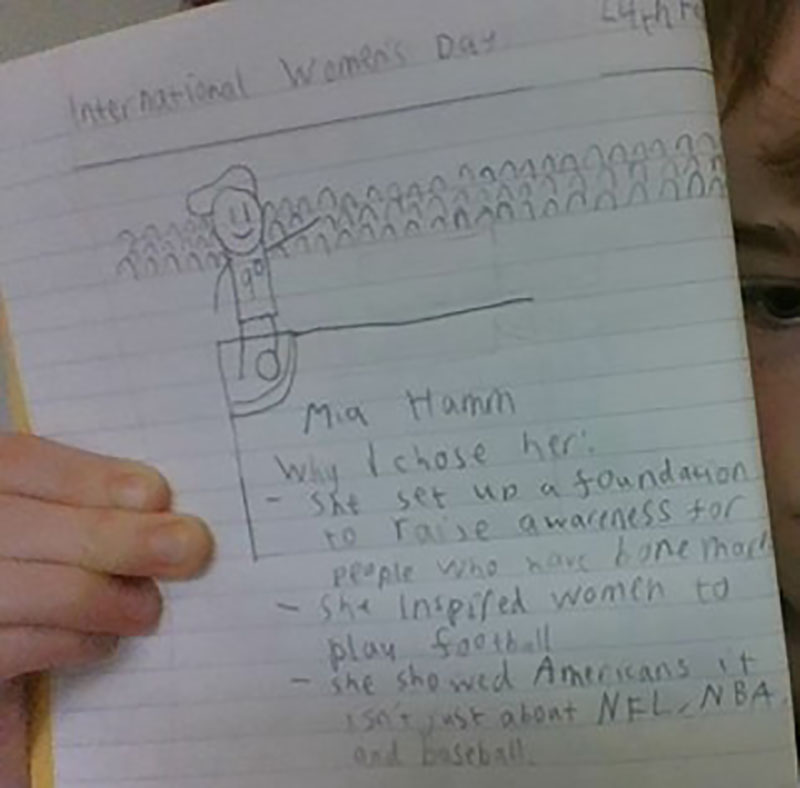 International Women's Day
9
Mia Hamm
Why I chose her:
- She set up a foundation
to raise awareness for
people who have bone
- She inspired women to
play football
- she showed Americans it
isn't just about NFL, NBA
and baseball.